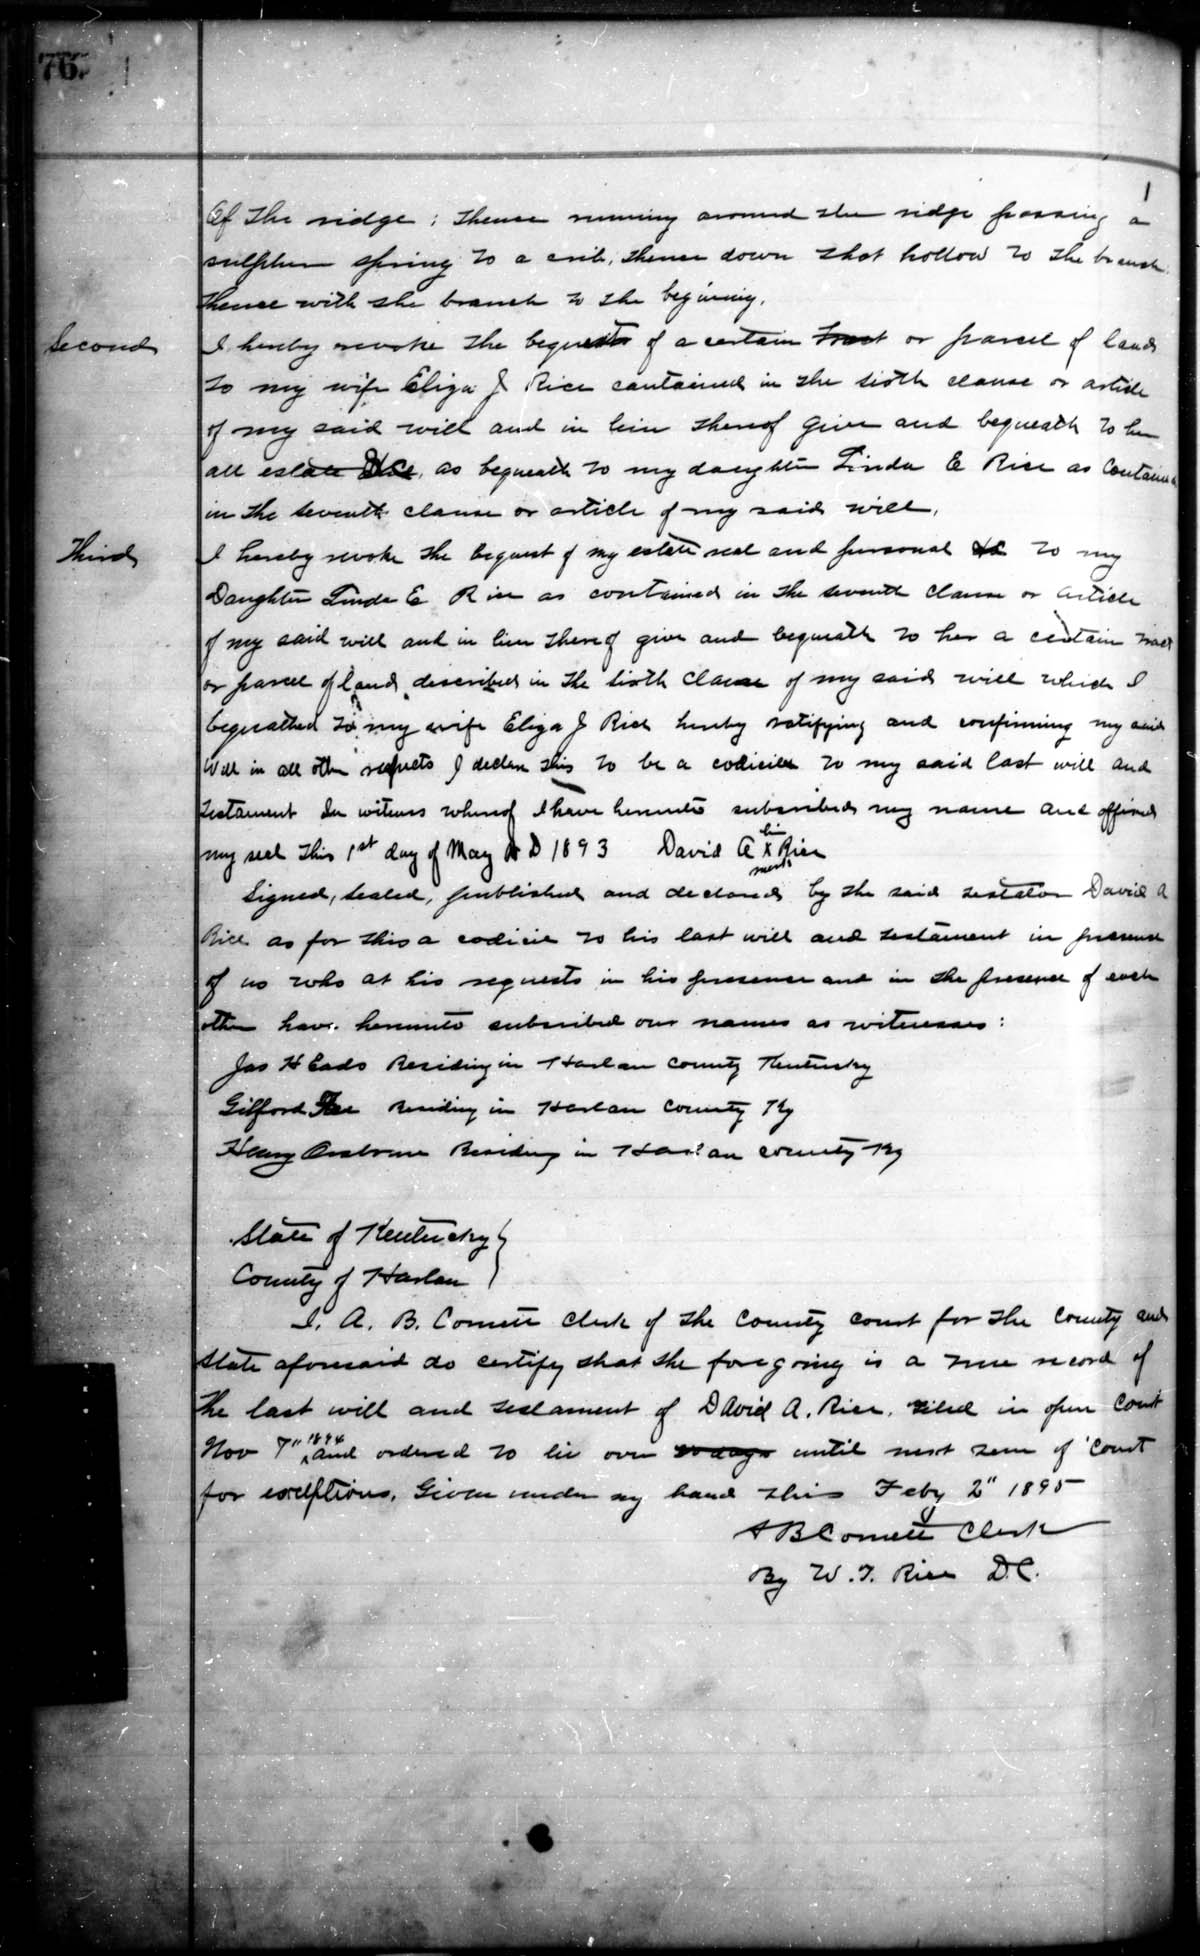 76
Of the ridge; thence running around the ridge passing a
sulpher spring to a crib, thence down that hollow to the branch
thence with the branch to the begining.
Second I hereby revoke the bequests of a certain tract or parcel of land
to my wife Eliza J Rice contained in the sixth clause or article
of my said will and in lieu thereof give and bequeath to her
all estate as bequeath to my daughter Linda E Rice as contained
in the seventh clause or article of my said will.
Third I hereby revoke the bequest of my estate real and personal to my
Daughter Linda E Rice as contained in the seventh clause or article
of my said will and in lieu thereof give and bequeath to her a certain tract
or parcel of land described in the sixth clause of my said will which I
bequeathed to my wife Eliza J Rice hereby ratifying and confirming my said
Will in all other respects I declare this to be a codicil to my said last will and
testament In witness whereof I have hereunto subscribed my name and affixed
my seal this 1st day of May A D 1893 David A his X mark Rice
Signed, sealed, published and declared by the said testator David A
Rice as for this a codicil to his last will and testament in presence
of us who at his requests in his presence and in the presence of each
other have hereunto subscribed our names as witnesses:
Jas H Eads Residing in Harlan County Kentucky
Gilford Residing in Harlan County Ky
Henry Osborne Residing in Harlan County Ky
State of Kentucky }
County of Harlan
I, A. B. Cornett Clerk of the County court for the County and
State aforesaid do certify that the foregoing is a true record of
the last will and testament of David A. Rice. filed in open Court
Nov 7" 1894 and ordered to lie over 30 days until next term of court
for exceptions. Given under my hand this Feby 2" 1895
A B Cornett Clerk
By W. T. Rice D.C.